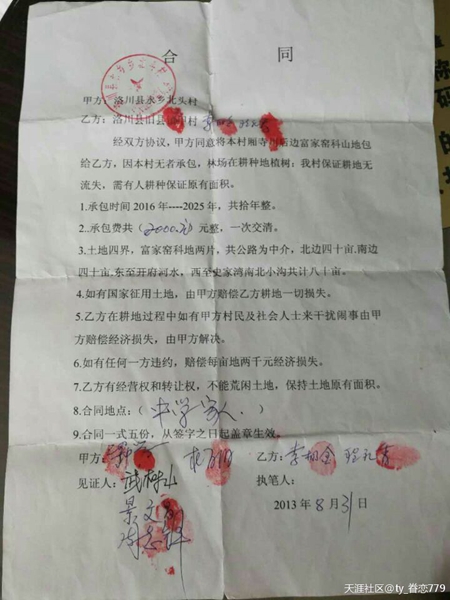 合 同
甲方：洛川县永乡北头村
乙方：洛川县旧县
经双方协议，甲方同意将本村厢寺川店边富家窑科山地包
给乙方，因本村无者承包，林场在耕种地植树：我村保证耕地无
流失，需有人耕种保证原有面积。
1.承包时间 2016 年----2025 年，共拾年整。
2..承包费共（2000元）元整，一次交清。
3.土地四界，富家窑科地两片，共公路为中介，北边四十亩.南边
四十亩.东至开府河水，西至史家湾南北小沟共计八十亩。
4.如有国家征用土地，由甲方赔偿乙方耕地一切损失。
5.乙方在耕地过程中如有甲方村民及社会人士来干扰闹事由甲
方赔偿经济损失，由甲方解决。
6.如有任何一方违约，赔偿每亩地两千元经济损失。
7.乙方有经营权和转让权，不能荒闲土地，保持土地原有面积。
8.合同地点：（
9.合同一式五份，从签字之日起盖章生效。
甲方： 乙方：
见证人： 执笔人：
景文
2013 年 8 月 31 日
天涯社区@ty_眷恋779